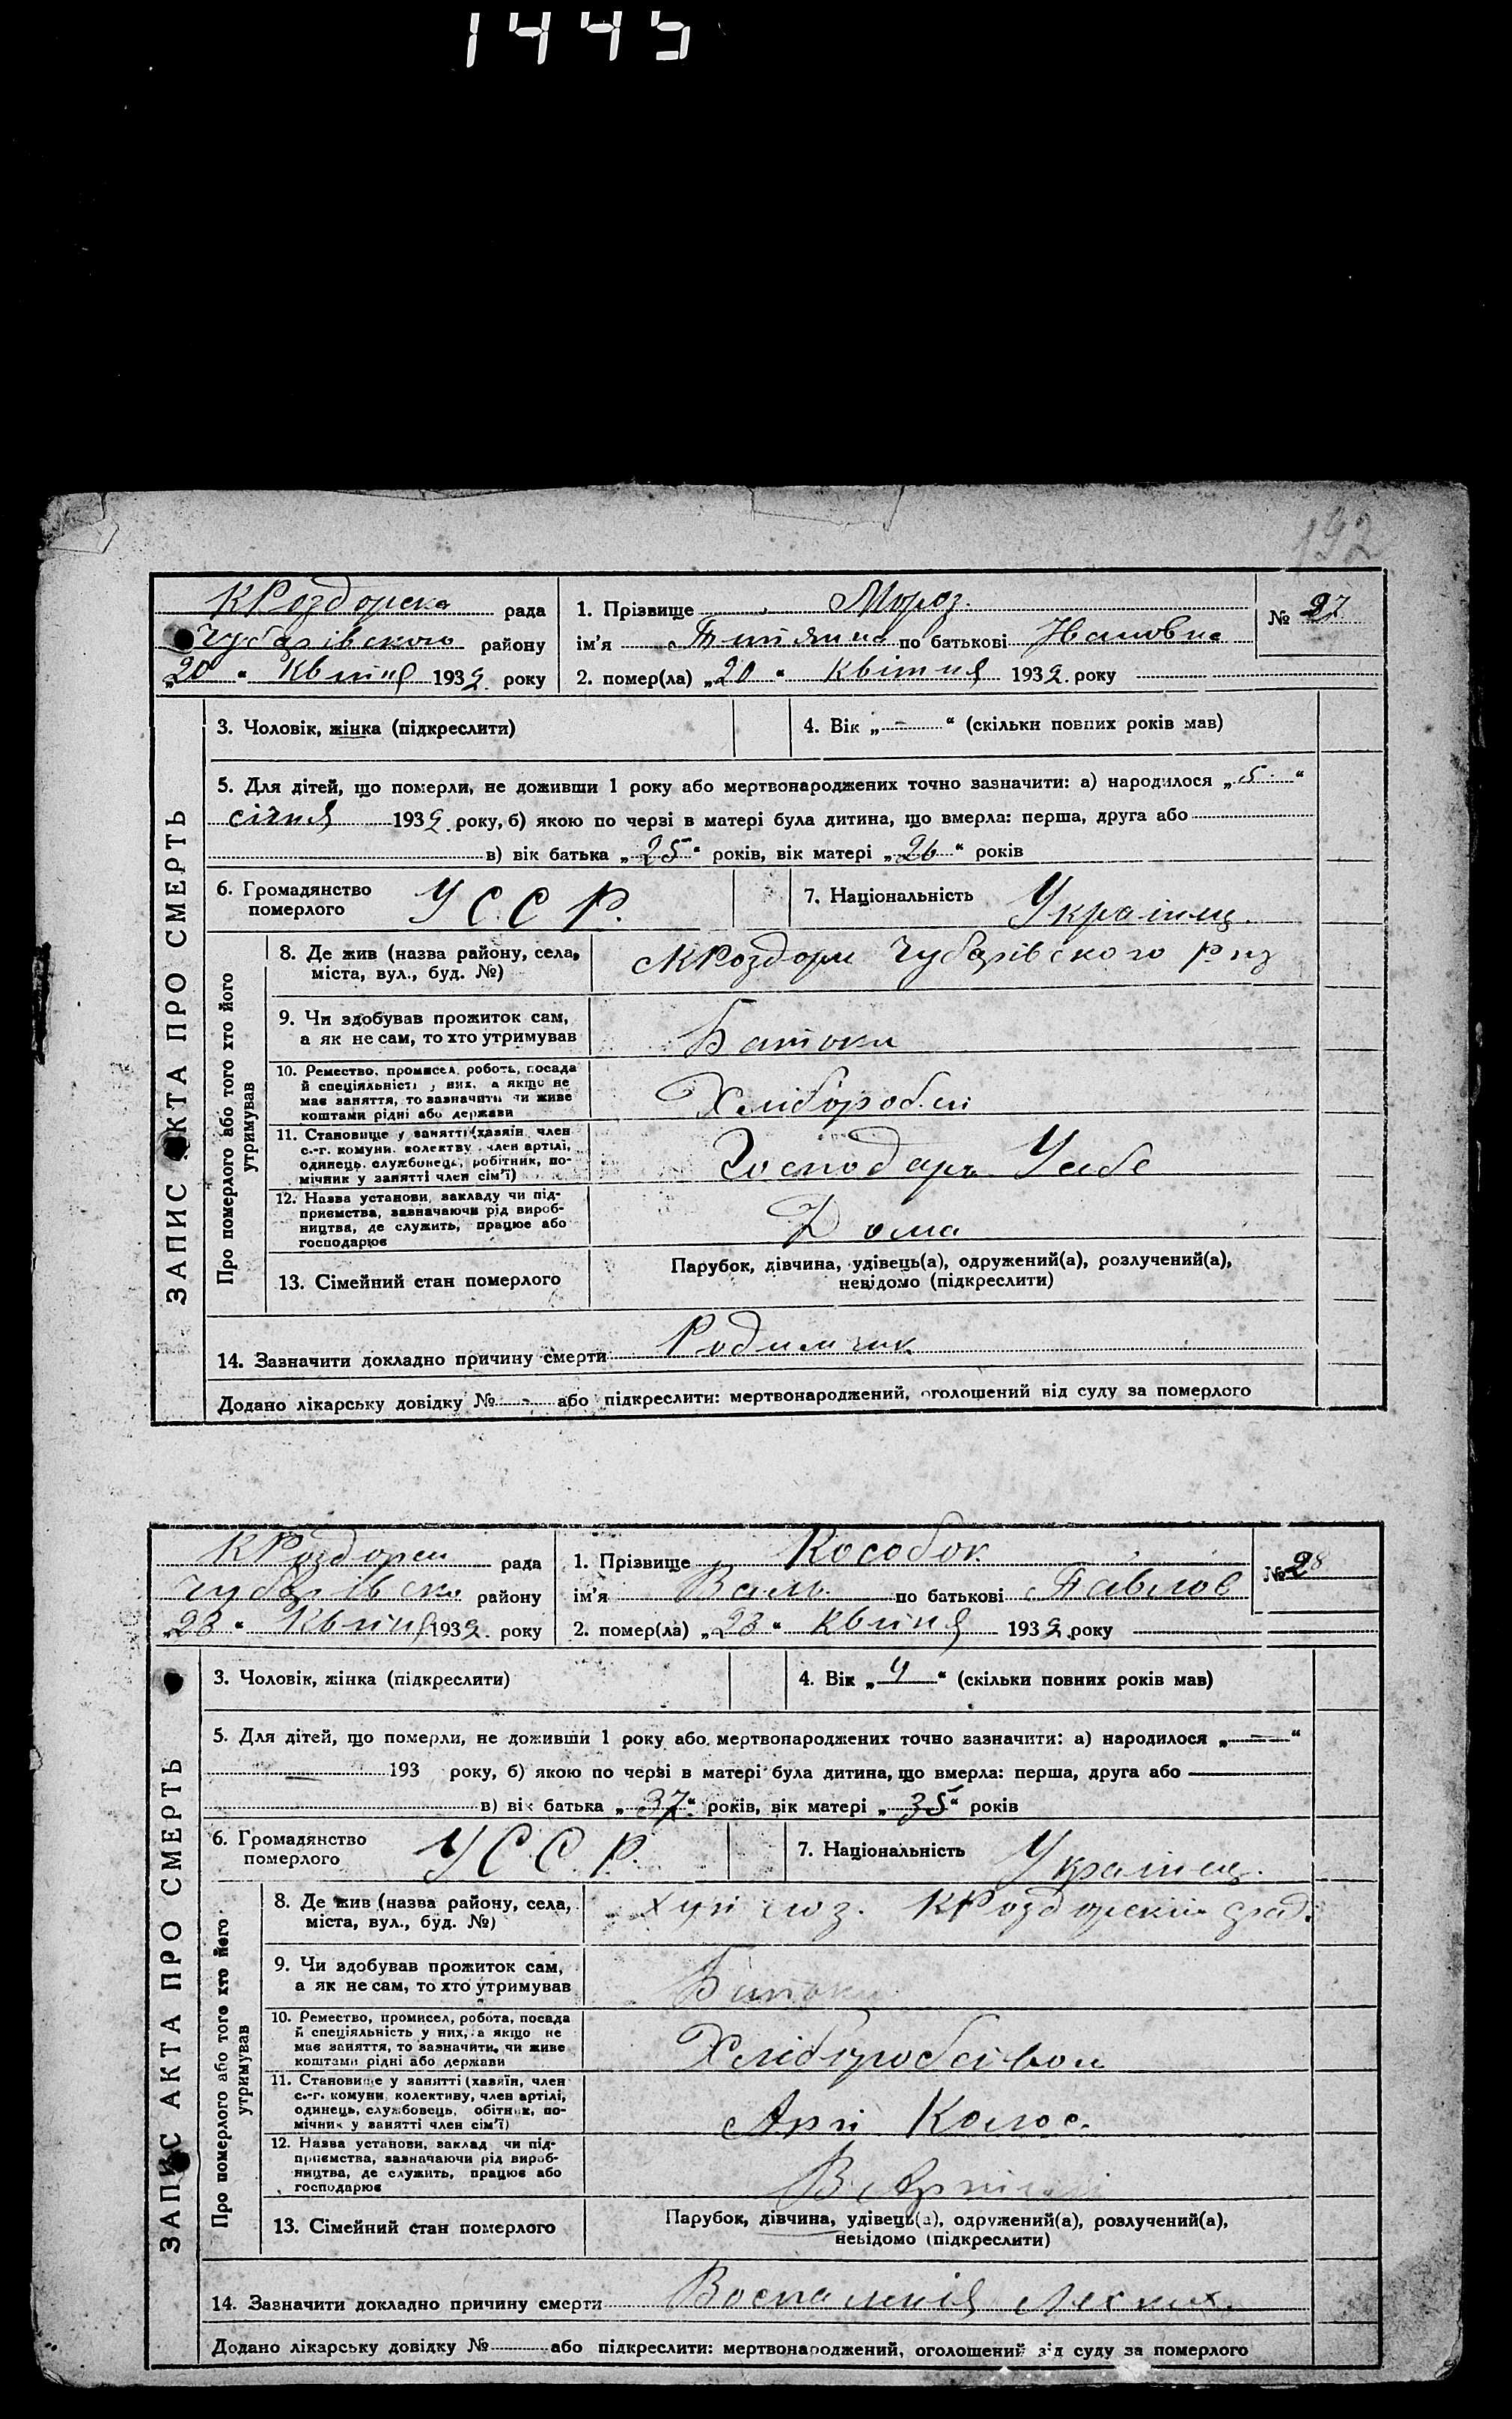 1445
192
КРоздорска рада
Чубарівского району
„20 “ Квітня 1932. року
1. Прізвище Мороз.
ім'я Титяна по батькові Ивановна
2. помер(ла) „20 “ Квітня 1932. року
№ 27
ЗАПИС АКТА ПРО СМЕРТЬ
3. Чоловік, жінка (підкреслити)
4. Вік „ - “ (скільки повних років мав)
5. Для дітей, що померли, не доживши 1 року або мертвонароджених точно зазначити: а) народилося „ 5 “
січня 1932. року, б) якою по черзі в матері була дитина, що вмерла: перша, друга або
в) вік батька „ 25 “ років, вік матері „ 26 “ років
6. Громадянство
померлого
У С С Р.
7. Національність Українц.
Про померлого або того хто його
утримував
8. Де жив (назва району, села,
міста, вул., буд. №)
КРоздори Чубарівского
9. Чи здобував прожиток сам,
а як не сам, то хто утримував
Батьки
10. Ремество, промисел, робота, посада
й спеціяльність у них, а якщо не
має заняття, то зазначити чи живе
коштами рідні або держави
Хлібороби
11. Становище у занятті (хазяїн, член
с.-г. комуни, колективу, член артілі,
одинець, службовець, робітник, по-
мічник у занятті член сім'ї)
Господарь
12. Назва установи, закладу чи під-
приємства, зазначаючи рід вироб-
ництва, де служить, працює або
господарює
Дома
13. Сімейний стан померлого
Парубок, дівчина, удівець(а), одружений(а), розлучений(а),
невідомо (підкреслити)
14. Зазначити докладно причину смерти Родимчик
Додано лікарську довідку № - або підкреслити: мертвонароджений, оголошений від суду за померлого
КРоздорск рада
Чубарівско району
„23 “ Квітня 1932. року
1. Прізвище Кособок
ім'я Валь. по батькові Павлов
2. помер(ла) „23 “ Квітня 1932. року
№ 28
ЗАПИС АКТА ПРО СМЕРТЬ
3. Чоловік, жінка (підкреслити)
4. Вік „ 4 “ (скільки повних років мав)
5. Для дітей, що померли, не доживши 1 року або мертвонароджених точно зазначити: а) народилося „ — “
— 193 року, б) якою по черзі в матері була дитина, що вмерла: перша, друга або —
в) вік батька „ 37 “ років, вік матері „ 35 “ років
6. Громадянство
померлого
У С С Р.
7. Національність Українец.
Про померлого або того хто його
утримував
8. Де жив (назва району, села,
міста, вул., буд. №)
КРоздорский
9. Чи здобував прожиток сам,
а як не сам, то хто утримував
Батьки
10. Ремество, промисел, робота, посада
й спеціяльність у них, а якщо не
має заняття, то зазначити, чи живе
коштами рідні або держави
Хліборобством
11. Становище у занятті (хазяїн, член
с.-г. комуни, колективу, член артілі,
одинець, службовець, робітник, по-
мічник у занятті член сім'ї)
Арті Колос.
12. Назва установи, заклад чи під-
приємства, зазначаючи рід вироб-
ництва, де служить, працює або
господарює
В Артілі
13. Сімейний стан померлого
Парубок, дівчина, удівець(а), одружений(а), розлучений(а),
невідомо (підкреслити)
14. Зазначити докладно причину смерти Воспаления Легких.
Додано лікарську довідку № або підкреслити: мертвонароджений, оголошений від суду за померлого